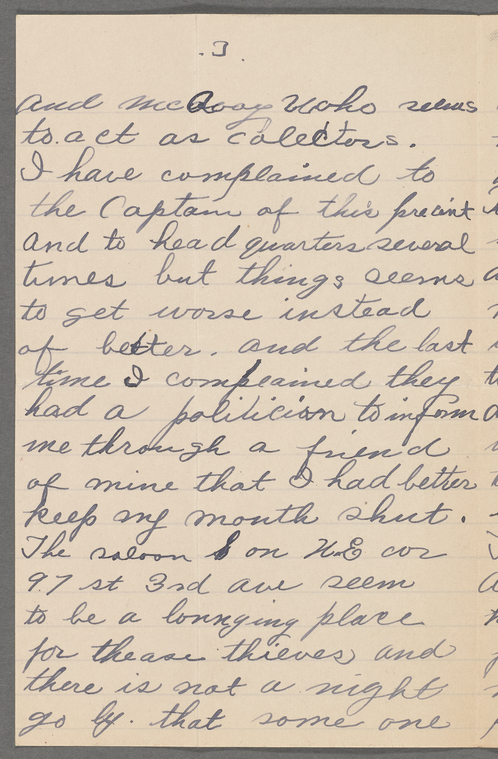 .3.
and McAvoy Who seems
to act as colectors.
I have complained to
the Captain of this precint
and to head quarters several
times but things seems
to get worse instead
of better. and the last
time I complained they
had a politician to inform
me through a friend
of mine that I had better
keep my mouth shut.
The saloon on N.E cor
97 st 3rd ave seem
to be a lounging place
for thease thieves and
there is not a night
go by. that some one